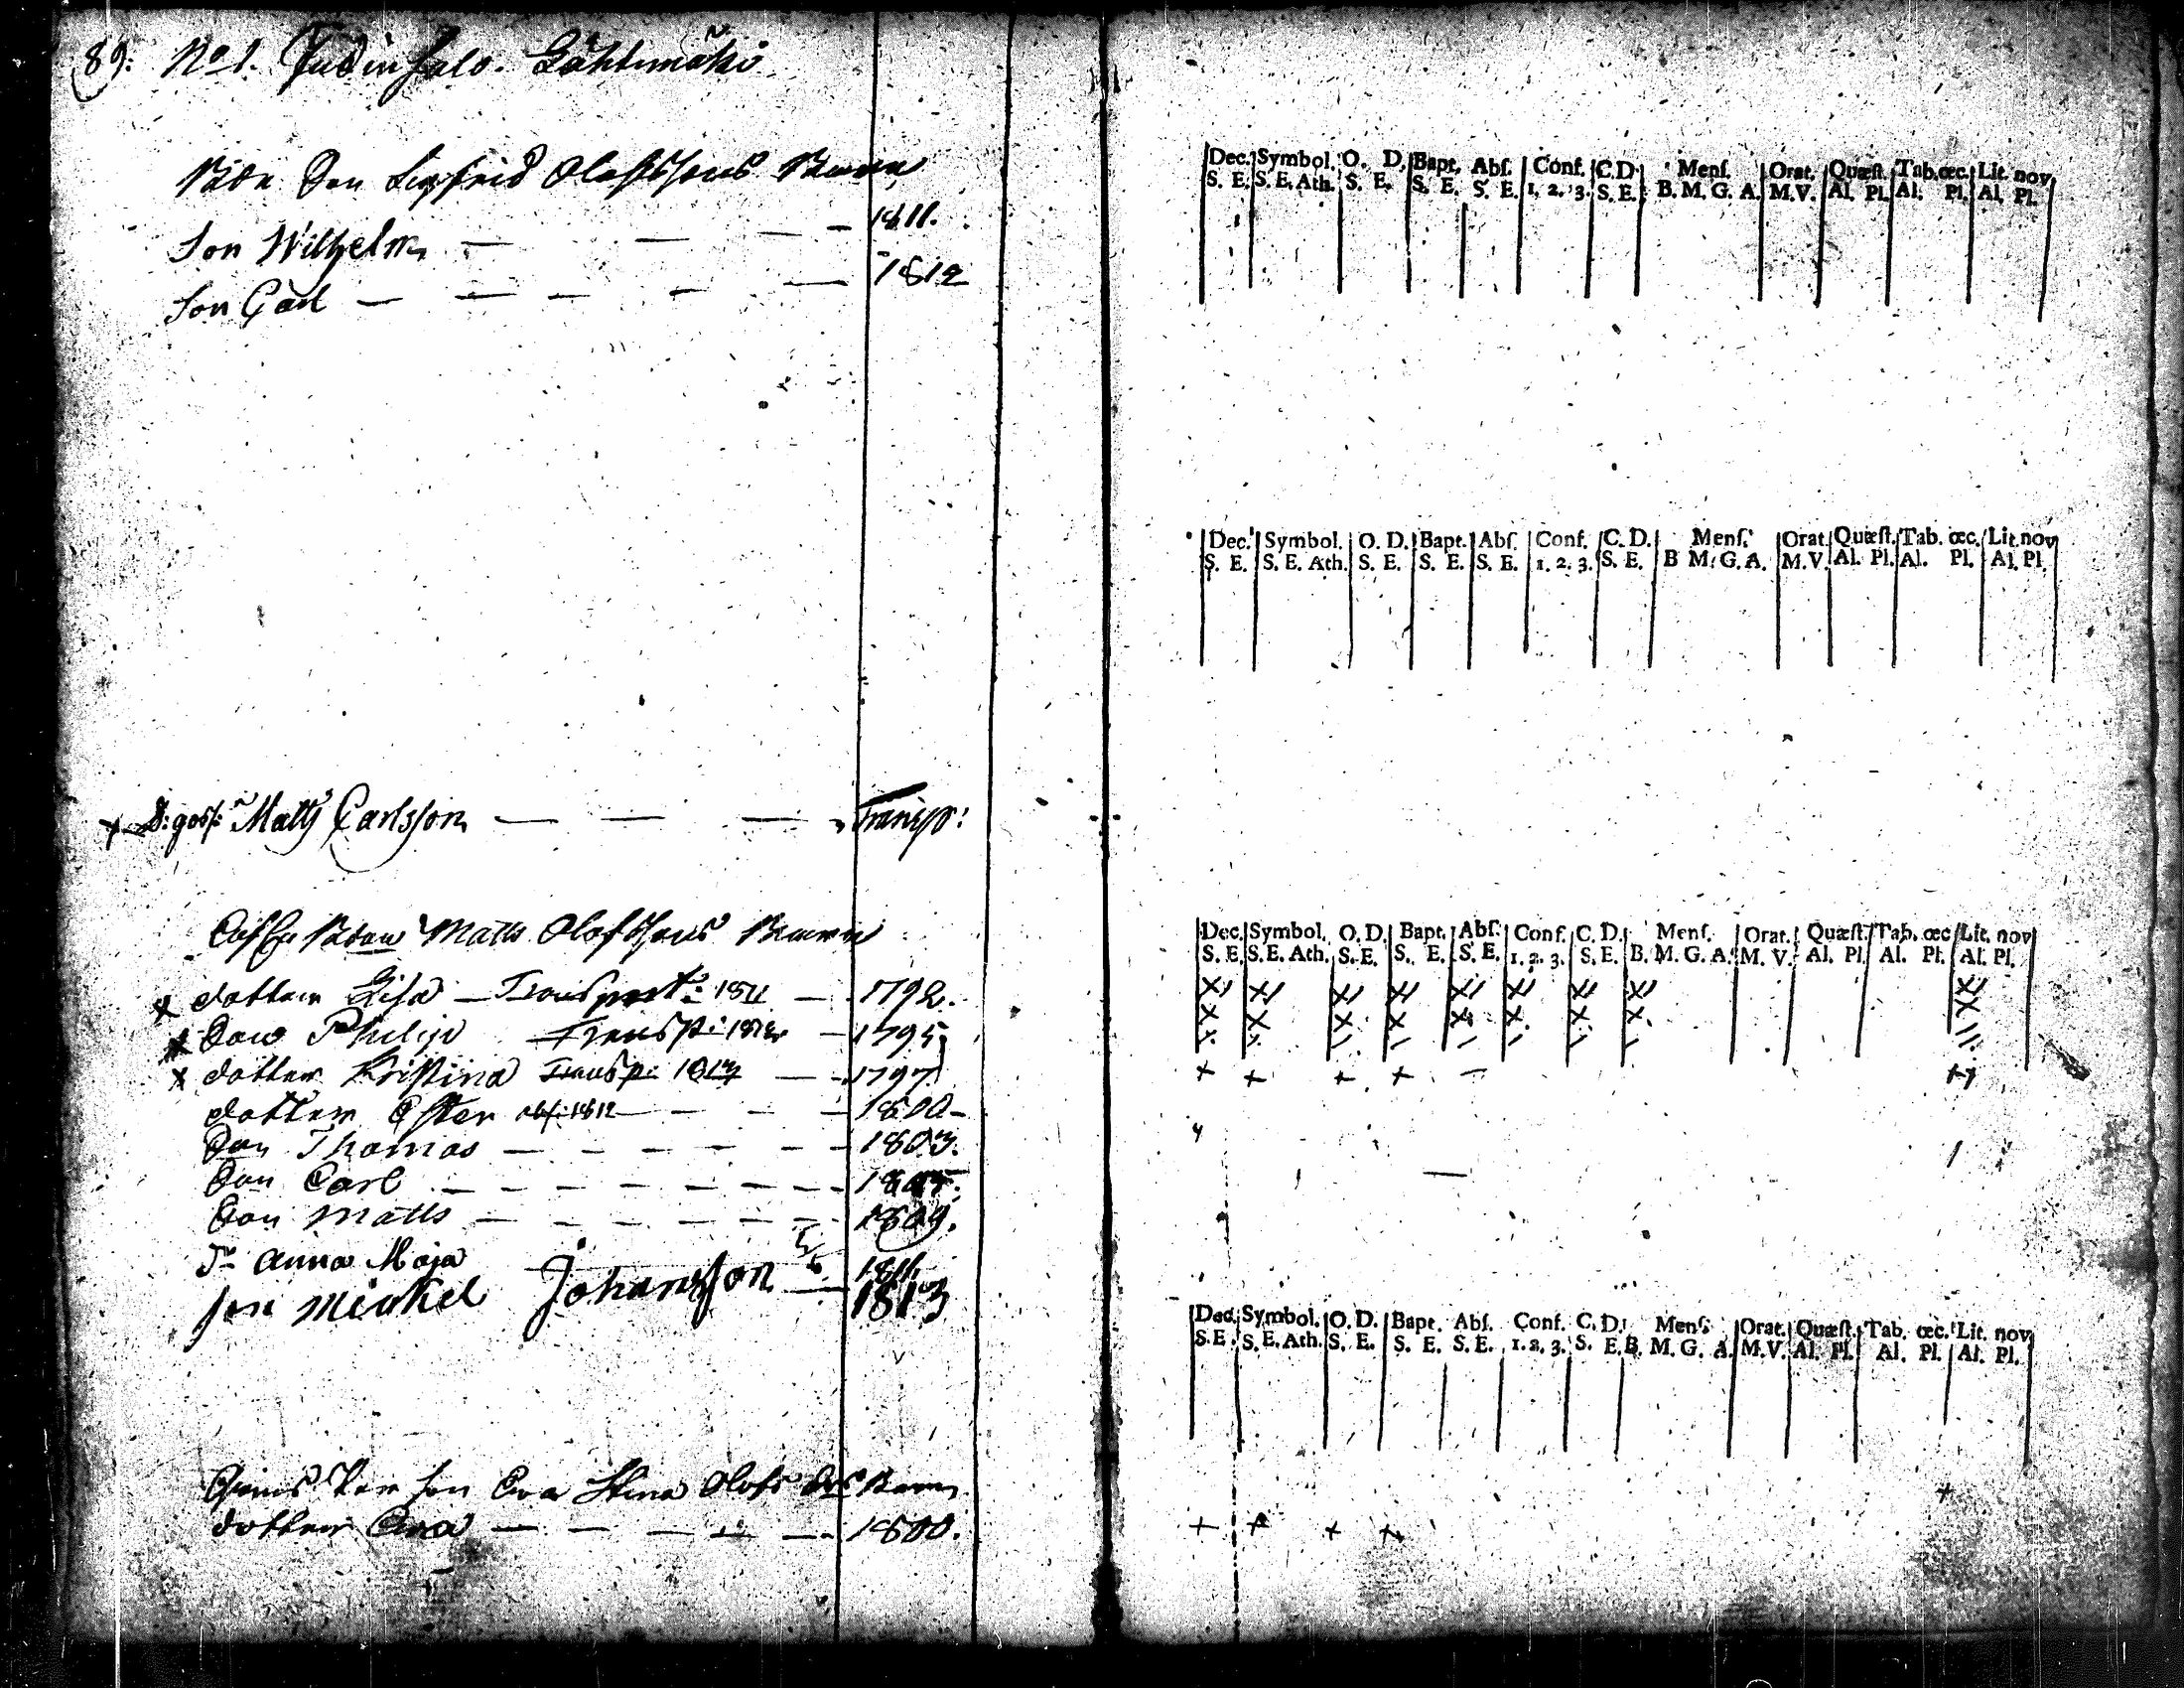 89. No 1. Ladinsalo. Lähtimäki
Sigfrid Olofssons Barn
Son Wilhelm — — — 1811.
Son Carl — — — — — 1812
+ D:goss: Matts Carlsson — — — Transp:
Matts Olofssons Barn
x dotter Lisa — Transport: 1811 — 1792.
x Son Philip Transp: — 1795.
x dotter Kristina Transp: 1813 — 1797
dotter Ester obf: 1812 — — — 1800.
Son Thomas — — — — — — 1803.
Son Carl — — — — — — — 1805.
Son Matts — — — — — — 1809.
Dr Anna Maja 1811.
Son Mickel Johansson — 1813
Son Eva Stina Olofs Drs Barn
dotter Eva — — — — — 1800.
Dec. Symbol. O. D. Bapt. Abſ. Conf. C. D. Menſ. Orat. Quæſt. Tab. œc. Lit. nov
S. E. S. E. Ath. S. E. S. E. S. E. 1. 2. 3. S. E. B. M. G. A. M. V. Al. Pl. Al. Pl. Al. Pl.
Dec. Symbol. O. D. Bapt. Abſ. Conf. C. D. Menſ. Orat. Quæſt. Tab. œc. Lit. nov
S. E. S. E. Ath. S. E. S. E. S. E. 1. 2. 3. S. E. B M. G. A. M. V. Al. Pl. Al. Pl. Al. Pl.
Dec. Symbol. O. D. Bapt. Abſ. Conf. C. D. Menſ. Orat. Quæſt. Tab. œc Lit. nov
S. E. S. E. Ath. S. E. S. E. S. E. 1. 2. 3. S. E. B. M. G. A. M. V. Al. Pl. Al. Pl. Al. Pl.
Dec. Symbol. O. D. Bapt. Abſ. Conf. C. D. Menſ. Orat. Quæſt. Tab. œc. Lit. nov
S. E. S. E. Ath. S. E. S. E. S. E. 1. 2. 3. S. E. B. M. G. A. M. V. Al. Pl. Al. Pl. Al. Pl.